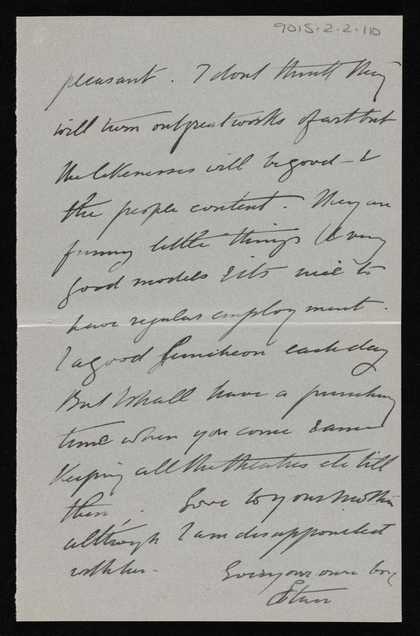 9015.2.2.110
pleasant. I dont think they
will turn out great works of art but
the likenesses will be good - &
the people content. They are
funny little things & very
good models & its nice to
have regular employment.
& a good luncheon each day
But I shall have a
time when you come & am
Keeping all the theatres etc till
then. Love to your mother
although I am disappointed
with her.
Ever your own boy